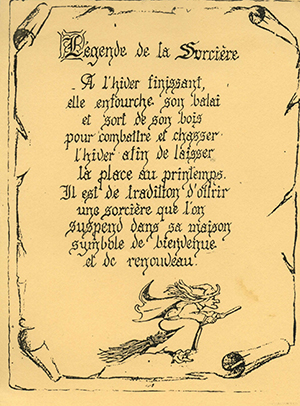 Légende de la Sorcière
A l'hiver finissant,
elle enfourche son balai
et sort de son bois
pour combattre et chasser
l'hiver afin de laisser
la place au printemps.
Il est de tradition d'offrir
une sorcière que l'on
suspend dans sa maison
symbole de bienvenue
et de renouveau.